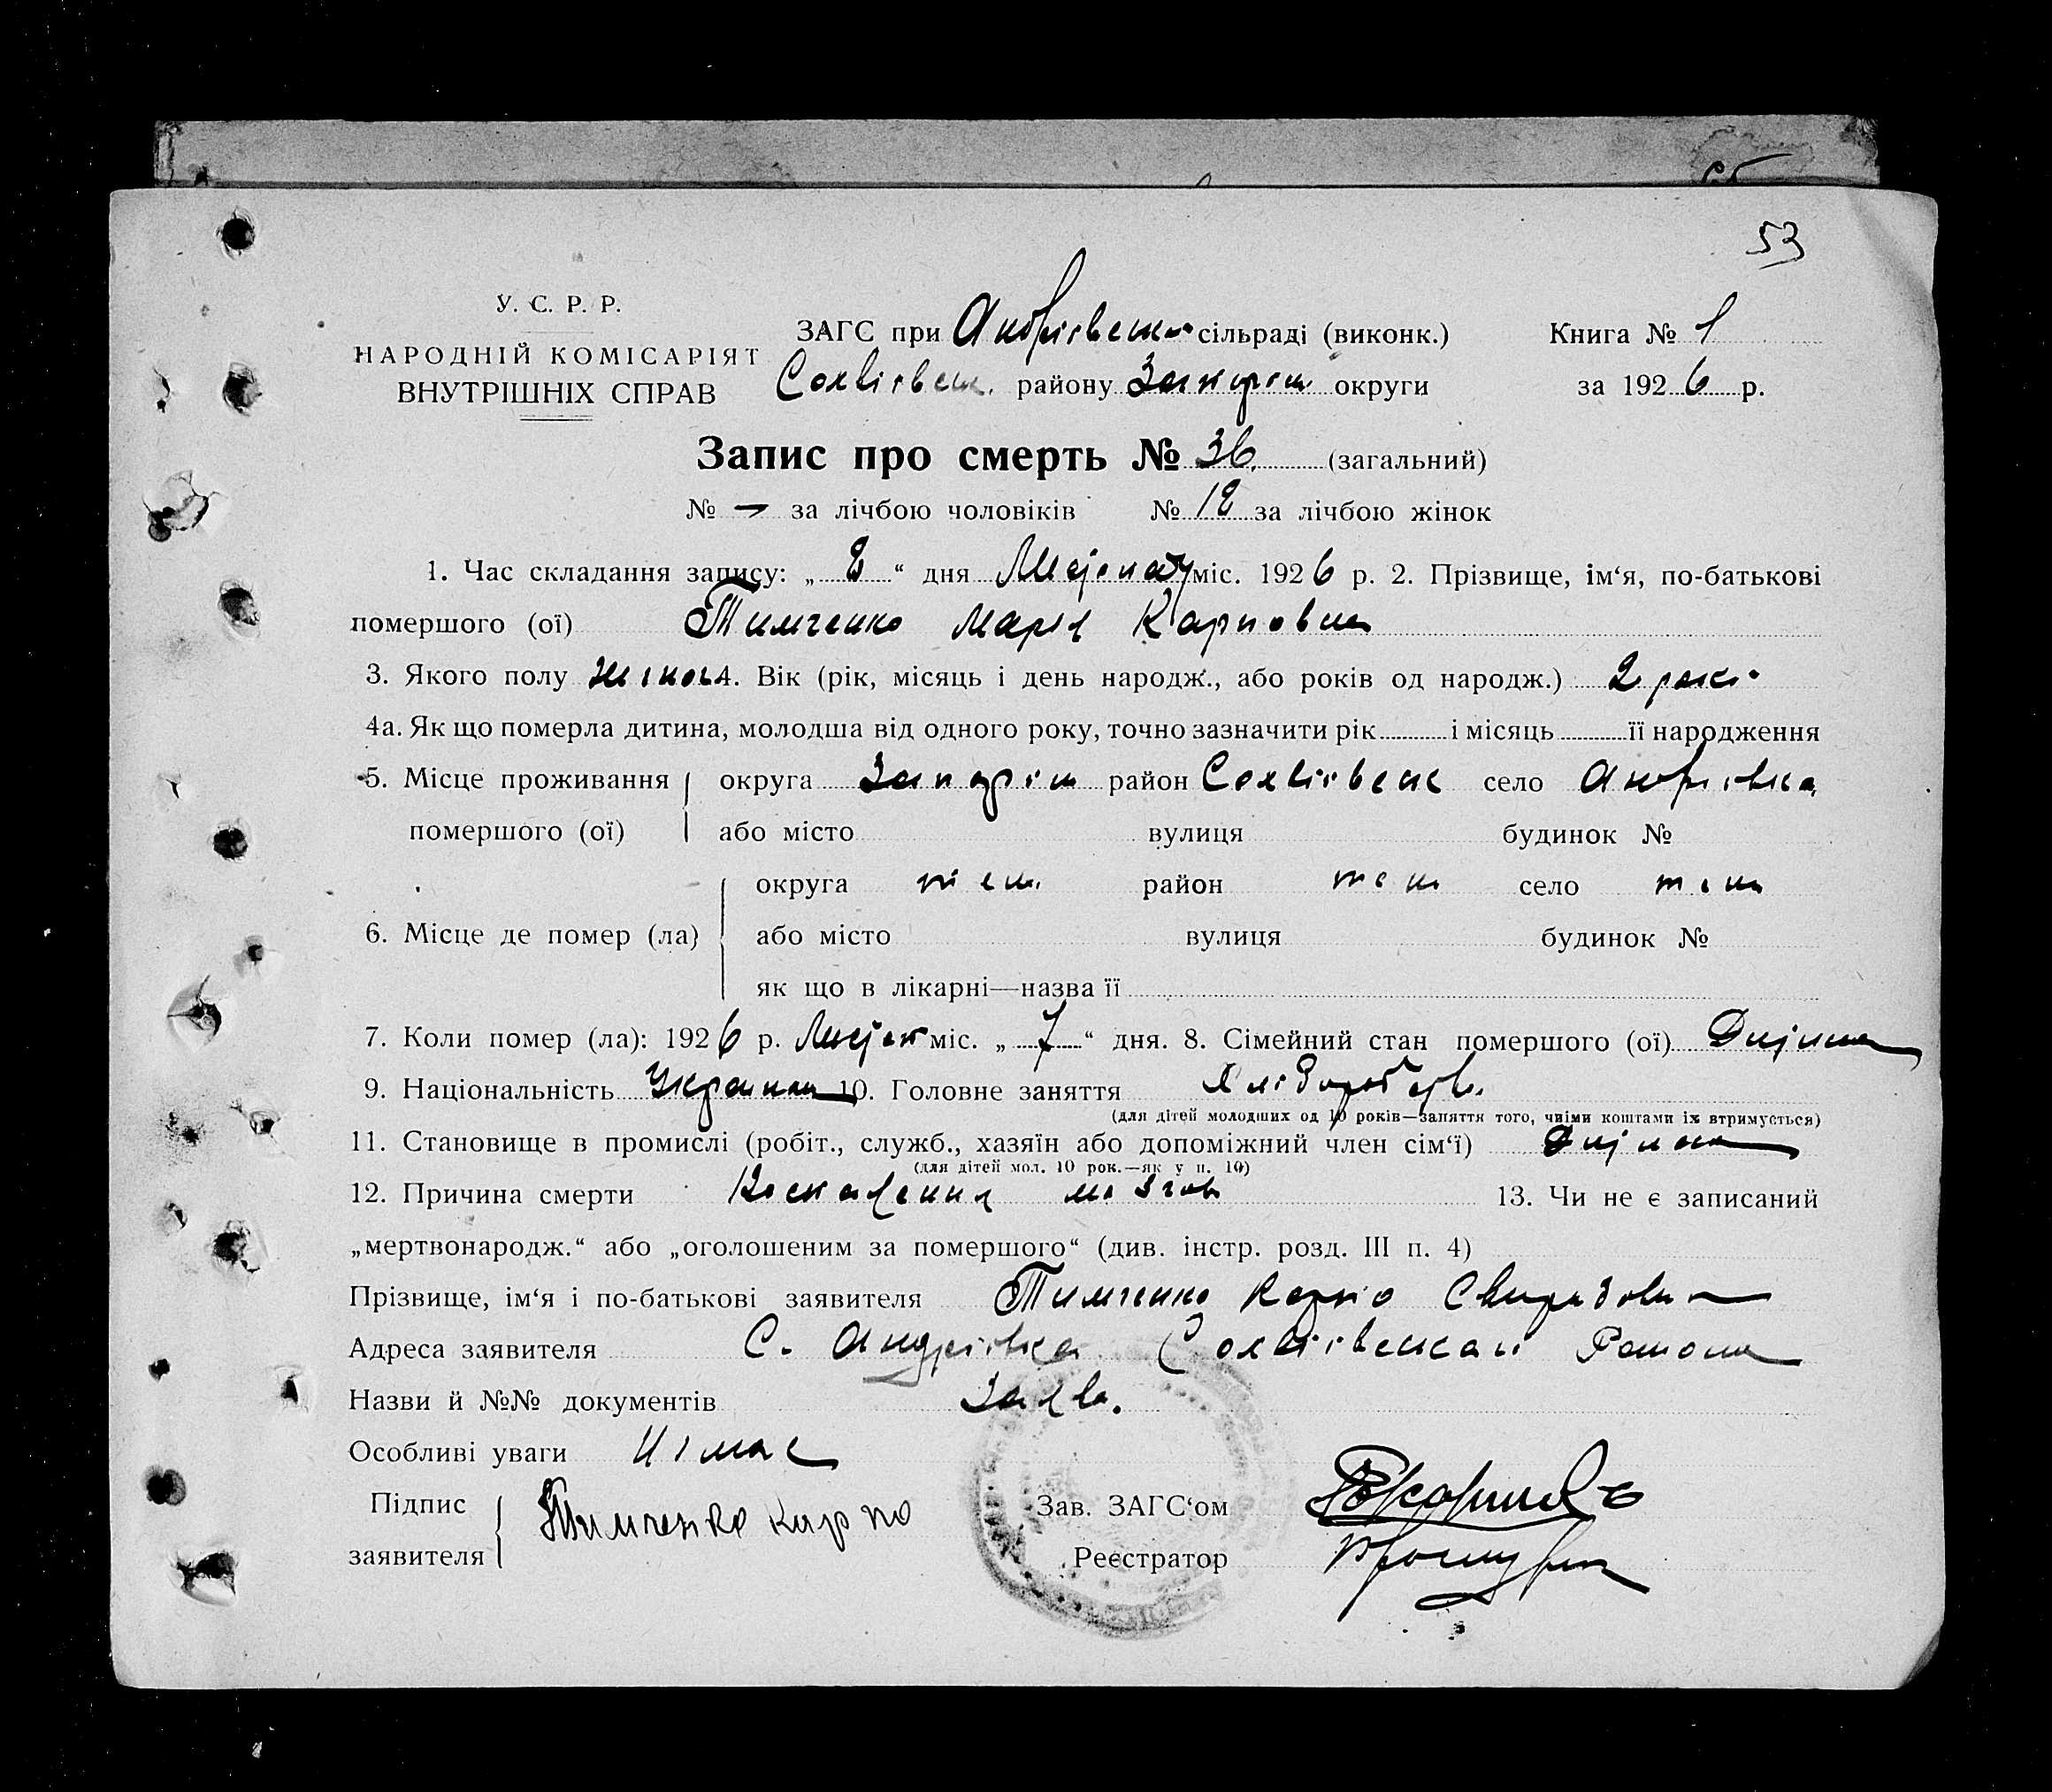 53
У. С. Р. Р.
НАРОДНІЙ КОМІСАРІЯТ
ВНУТРІШНІХ СПРАВ
ЗАГС при Андріівськ сільраді (виконк.) Книга № 1
Софіівськ. району Запоріж округи за 1926 р.
Запис про смерть № 36. (загальний)
№ — за лічбою чоловіків № 18 за лічбою жінок
1. Час складання запису: „ 8 “ дня міс. 1926 р. 2. Прізвище, ім‘я, по-батькові
помершого (ої) Тимченко Марія Карповна
3. Якого полу жіноч 4. Вік (рік, місяць і день народж., або років од народж.) 2 роки
4а. Як що померла дитина, молодша від одного року, точно зазначити рік і місяць її народження
5. Місце проживання округа Запоріж район Софіівськ село Андріівка
помершого (ої) або місто вулиця будинок №
округа теж район теж село теж
6. Місце де помер (ла) або місто вулиця будинок №
як що в лікарні—назва її
7. Коли помер (ла): 1926 р. міс. „ 7 “ дня. 8. Сімейний стан помершого (ої) Дитина
9. Національність Украінка 10. Головне заняття Хліборобств.
(для дітей молодших од 10 років—заняття того, чиїми коштами їх втримується)
11. Становище в промислі (робіт., служб., хазяїн або допоміжний член сім‘ї) Дитина
(для дітей мол. 10 рок.—як у п. 10)
12. Причина смерти Воспаленія мозгов 13. Чи не є записаний
„мертвонародж.“ або „оголошеним за помершого“ (див. інстр. розд. III п. 4)
Прізвище, ім‘я і по-батькові заявителя Тимченко Карпо Свиридович
Адреса заявителя С. Андріівка Софіівський Району
Назви й №№ документів Заява.
Особливі уваги Німає
Підпис Тимченко карпо Зав. ЗАГС‘ом
заявителя Реєстратор